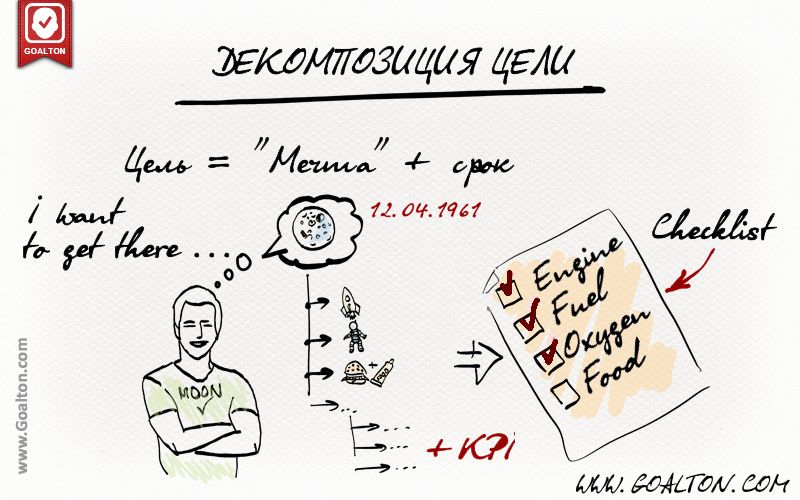 GOALTON
ДЕКОМПОЗИЦИЯ ЦЕЛИ
Цель = "Мечта" + срок
i want
to get there ...
12.04.1961
MOON
+
...
...
...
...
+ KPi
Checklist
Engine
Fuel
Oxygen
Food
www.Goalton.com
WWW.GOALTON.COM